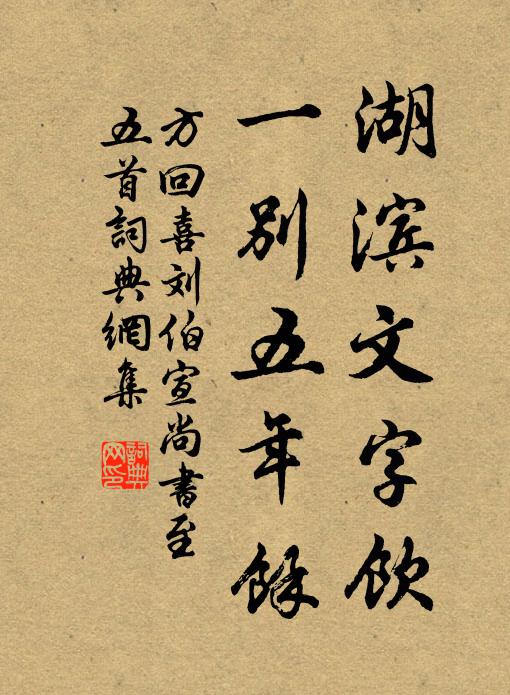 湖滨文字饮
一别五年馀
方回喜刘伯宣尚書至
五首詞典網集
詞典
网印